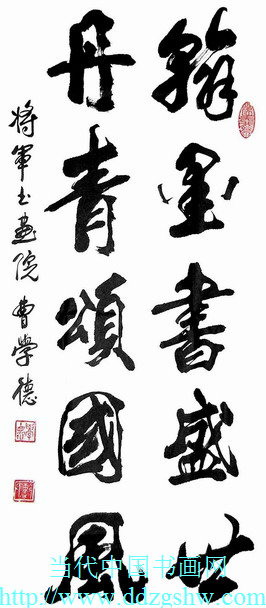 翰墨書盛世
丹青頌國風
将軍书畫院 曹學德
当代中国书画网
http://www.ddzgshw.com